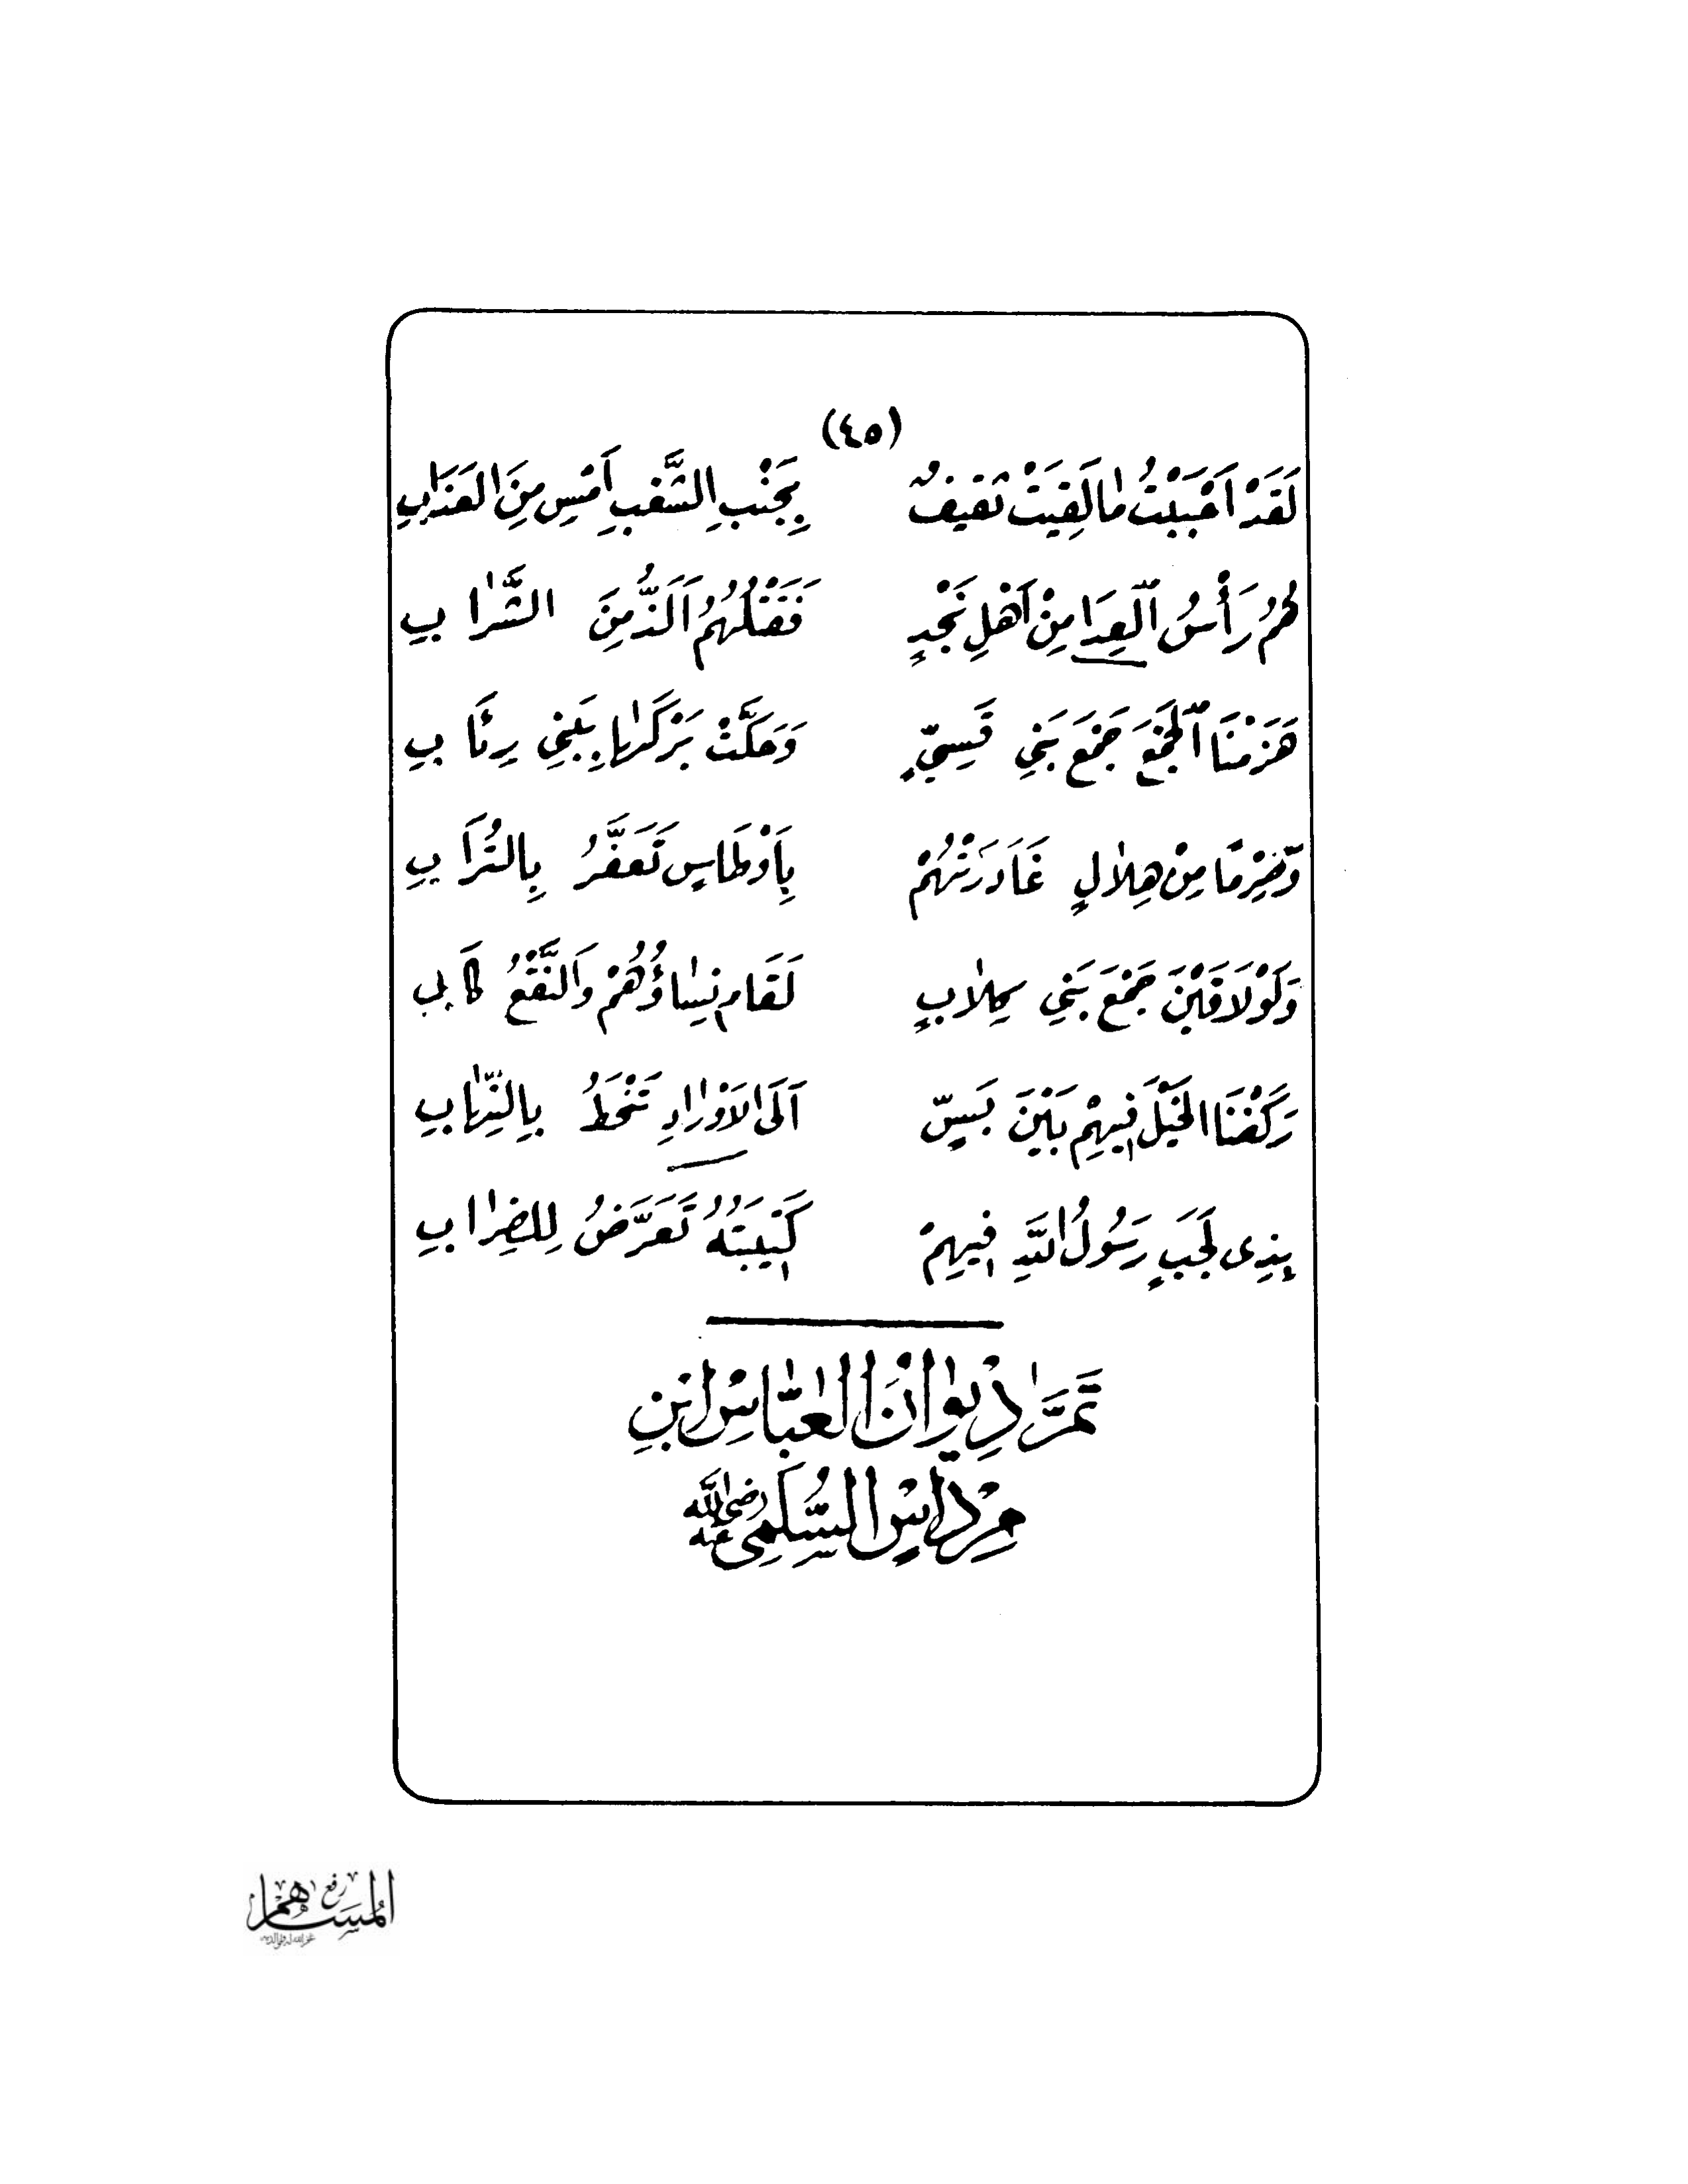 (٤٥)
لَقَدْ اَحْبَبْتُ مٰا لَقِيَتْ ثَقِيفٌ بِجَنْبِ الشَّعْبِ اَمْسِ مِنَ الْعَذَابِ
هُمُ رَأْسُ الْعِدَا مِنْ اَهْلِ نَجْدٍ فَقَتْلُهُمُ اَلَذُّ مِنَ الشَّرٰابِ
هَزَمْنَا الْجَمْعَ جَمْعَ بَنِي قَسِيٍّ وَحَكَّتْ بَرْكَهٰا بِبَنِي رِئَابِ
وَصِرْمًا مِنْ هِلٰالٍ غَادَرَتْهُمْ بِاَوْطَاسٍ تَعَفَّرُ بِالتُّرَابِ
وَلَوْ لَاقَيْنَ جَمْعَ بَنِي كِلٰابٍ لَقَامَ نِسٰاؤُهُمْ وَالنَّقْعُ كَابِي
رَكَضْنَا الْخَيْلَ فِيهِمْ بَيْنَ بَسٍّ اَلَى الْاَوْرٰادِ تَنْحَطُ بِالنِّهٰابِ
بِذِى لَجَبٍ رَسُولُ اللهِ فِيهِمْ كَتِيبَتُهُ تَعَرَّضُ لِلضِرٰابِ
تَمَّ دِيوٰانُ الْعَبّٰاسِ ابْنِ
مِرْدٰاسٍ السُّلَمِى رضى الله عنه
رفع
المساهم
غفر الله له ولوالديه